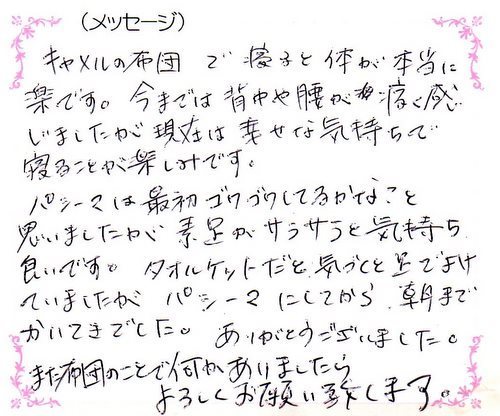 (メッセージ)
キャメルの布団で寝ると体が本当に
楽です。今までは背中や腰が痛く感
じましたが現在は幸せな気持ちで
寝ることが楽しみです。
パシーマは最初ゴワゴワしてるかなこと
思いましたが素足がサラサラと気持ち
良いです。タオルケットだと気づくと足でよけ
ていましたが パシーマにしてから、朝まで
かいてきでした。ありがとうございました。
また布団のことで何かありましたら
よろしくお願い致します。